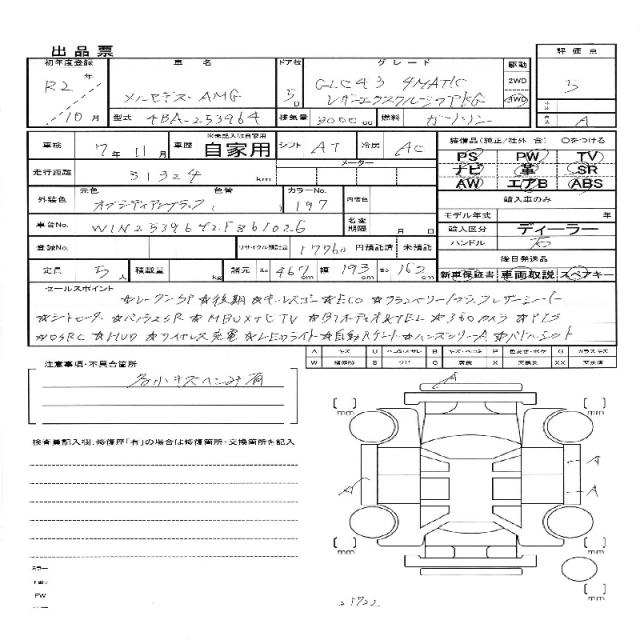 出品票
初年度登録 車名 ドア枚 グレード 駆動 評価点
R2年 メルセデス・AMG 5D GLC43 4MATIC 2WD 5
レザーエクスクルーシブPKG 4WD
10月 型式 4BA-253964 排気量 3000cc 燃料 ガソリン A
車検 7年11月 車歴 ※未記入は自家用 自家用 シフト AT 冷房 AC 装備品(純正/社外 含) 〇をつける
PS PW TV
走行距離 31324 km メーター ナビ 革 SR
AW エアB ABS
外装色 元色 オブシディアンブラック 色替 カラーNo. 197 内装色 輸入車のみ
モデル年式 年
車台No. W1N2539642F861026 名変期限 月 日 輸入区分 ディーラー
登録No. リサイクル預託金 17760 円預託済 未預託 ハンドル 右
後日発送品
定員 5人 積載量 kg 諸元 長さ 467cm 幅 193cm 高さ 162cm 新車保証書 車両取説 スペアキー
セールスポイント
☆レーダーSP ☆後期 ☆ ☆ECO ☆
☆シートヒーター ☆パノラマSR ☆MBUX ☆TV ☆BTオーディオ&TEL ☆360°カメラ ☆PTS
☆HUD ☆ワイヤレス充電 ☆LEDライト ☆自動Rゲート ☆ハンズフリーA ☆パドルシフト
A キズ U ヘコミ B キズ・ヘコミ P 色あせ・ボケ G ガラスキズ
W 補修跡 S サビ C 腐食 X 交換要 XX 交換済
注意事項・不具合箇所
多少キズヘコミ有
A
mm mm
検査員記入欄:修復歴「有」の場合は修復箇所・交換箇所を記入
A A
A
mm mm
PW
mm
25722